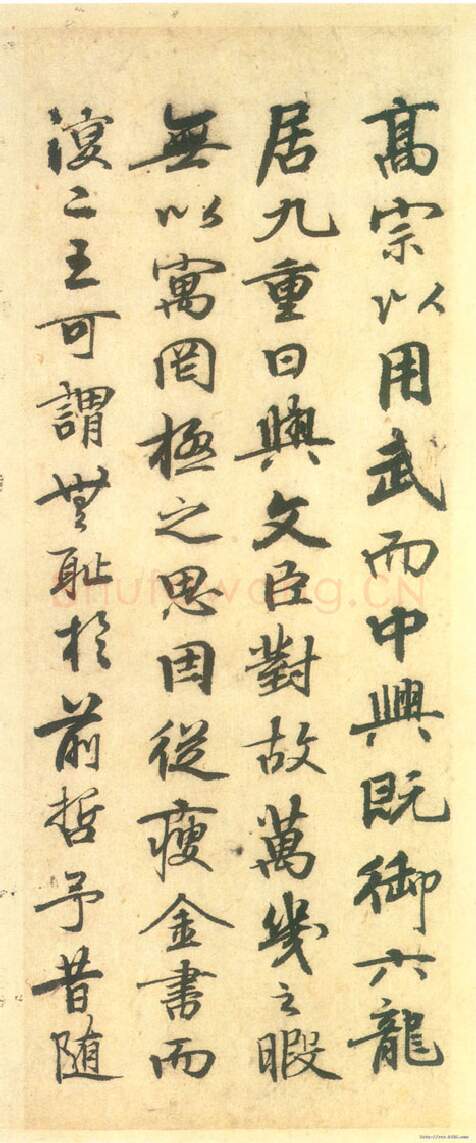 高宗以用武而中興既御六龍
居九重日與文臣對故萬幾之暇
無以寓罔極之思因從瘦金書而
復二王可謂無恥於前哲予昔随
shufawang.CN